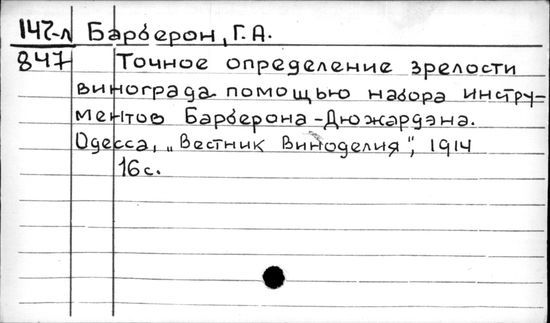 147-л Барберон, Г. А.
847 Точное определение зрелости
винограда помощью набора инстру-
ментов Барберона-Дюжардэна.
Одесса, „Вестник Виноделия", 1914
16 с.